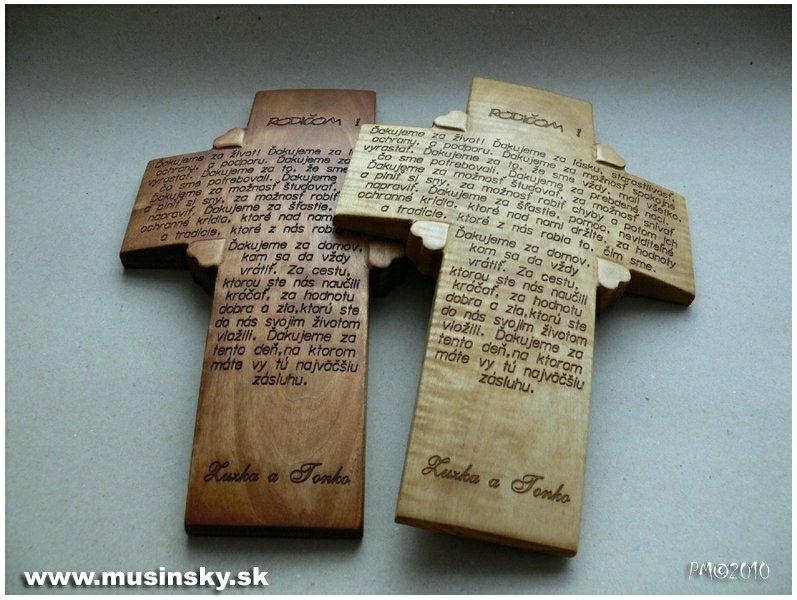 RODIČOM !
Ďakujeme za život! Ďakujeme za
ochrany, a podporu. Ďakujeme za
vyrastať. Ďakujeme za to, že sme
čo sme potrebovali. Ďakujeme
Ďakujeme za možnosť študovať,
a plniť si sny, za možnosť robiť
napraviť. Ďakujeme za šťastie,
ochranné krídla, ktoré nad nami
a tradície, ktoré z nás robia
Ďakujeme za domov,
kam sa dá vždy
vrátiť. Za cestu,
ktorou ste nás naučili
kráčať, za hodnotu
dobra a zla,ktorú ste
do nás svojim životom
vložili. Ďakujeme za
tento deň,na ktorom
máte vy tú najväčšiu
zásluhu.
Zuzka a Tonko
RODIČOM !
Ďakujeme za život! Ďakujeme za lásku, starostlivosť,
ochrany, a podporu. Ďakujeme za možnosť pokojne
vyrastať. Ďakujeme za to, že sme vždy mali všetko,
čo sme potrebovali. Ďakujeme za prebdené noci.
Ďakujeme za možnosť študovať, za možnosť snívať
a plniť si sny, za možnosť robiť chyby a potom ich
napraviť. Ďakujeme za šťastie, pomoc, neviditeľné
ochranné krídla, ktoré nad nami držíte, za hodnoty
a tradície, ktoré z nás robia to, čím sme.
Ďakujeme za domov,
kam sa dá vždy
vrátiť. Za cestu,
ktorou ste nás naučili
kráčať, za hodnotu
dobra a zla,ktorú ste
do nás svojim životom
vložili. Ďakujeme za
tento deň,na ktorom
máte vy tú najväčšiu
zásluhu.
Zuzka a Tonko
www.musinsky.sk
PM©2010